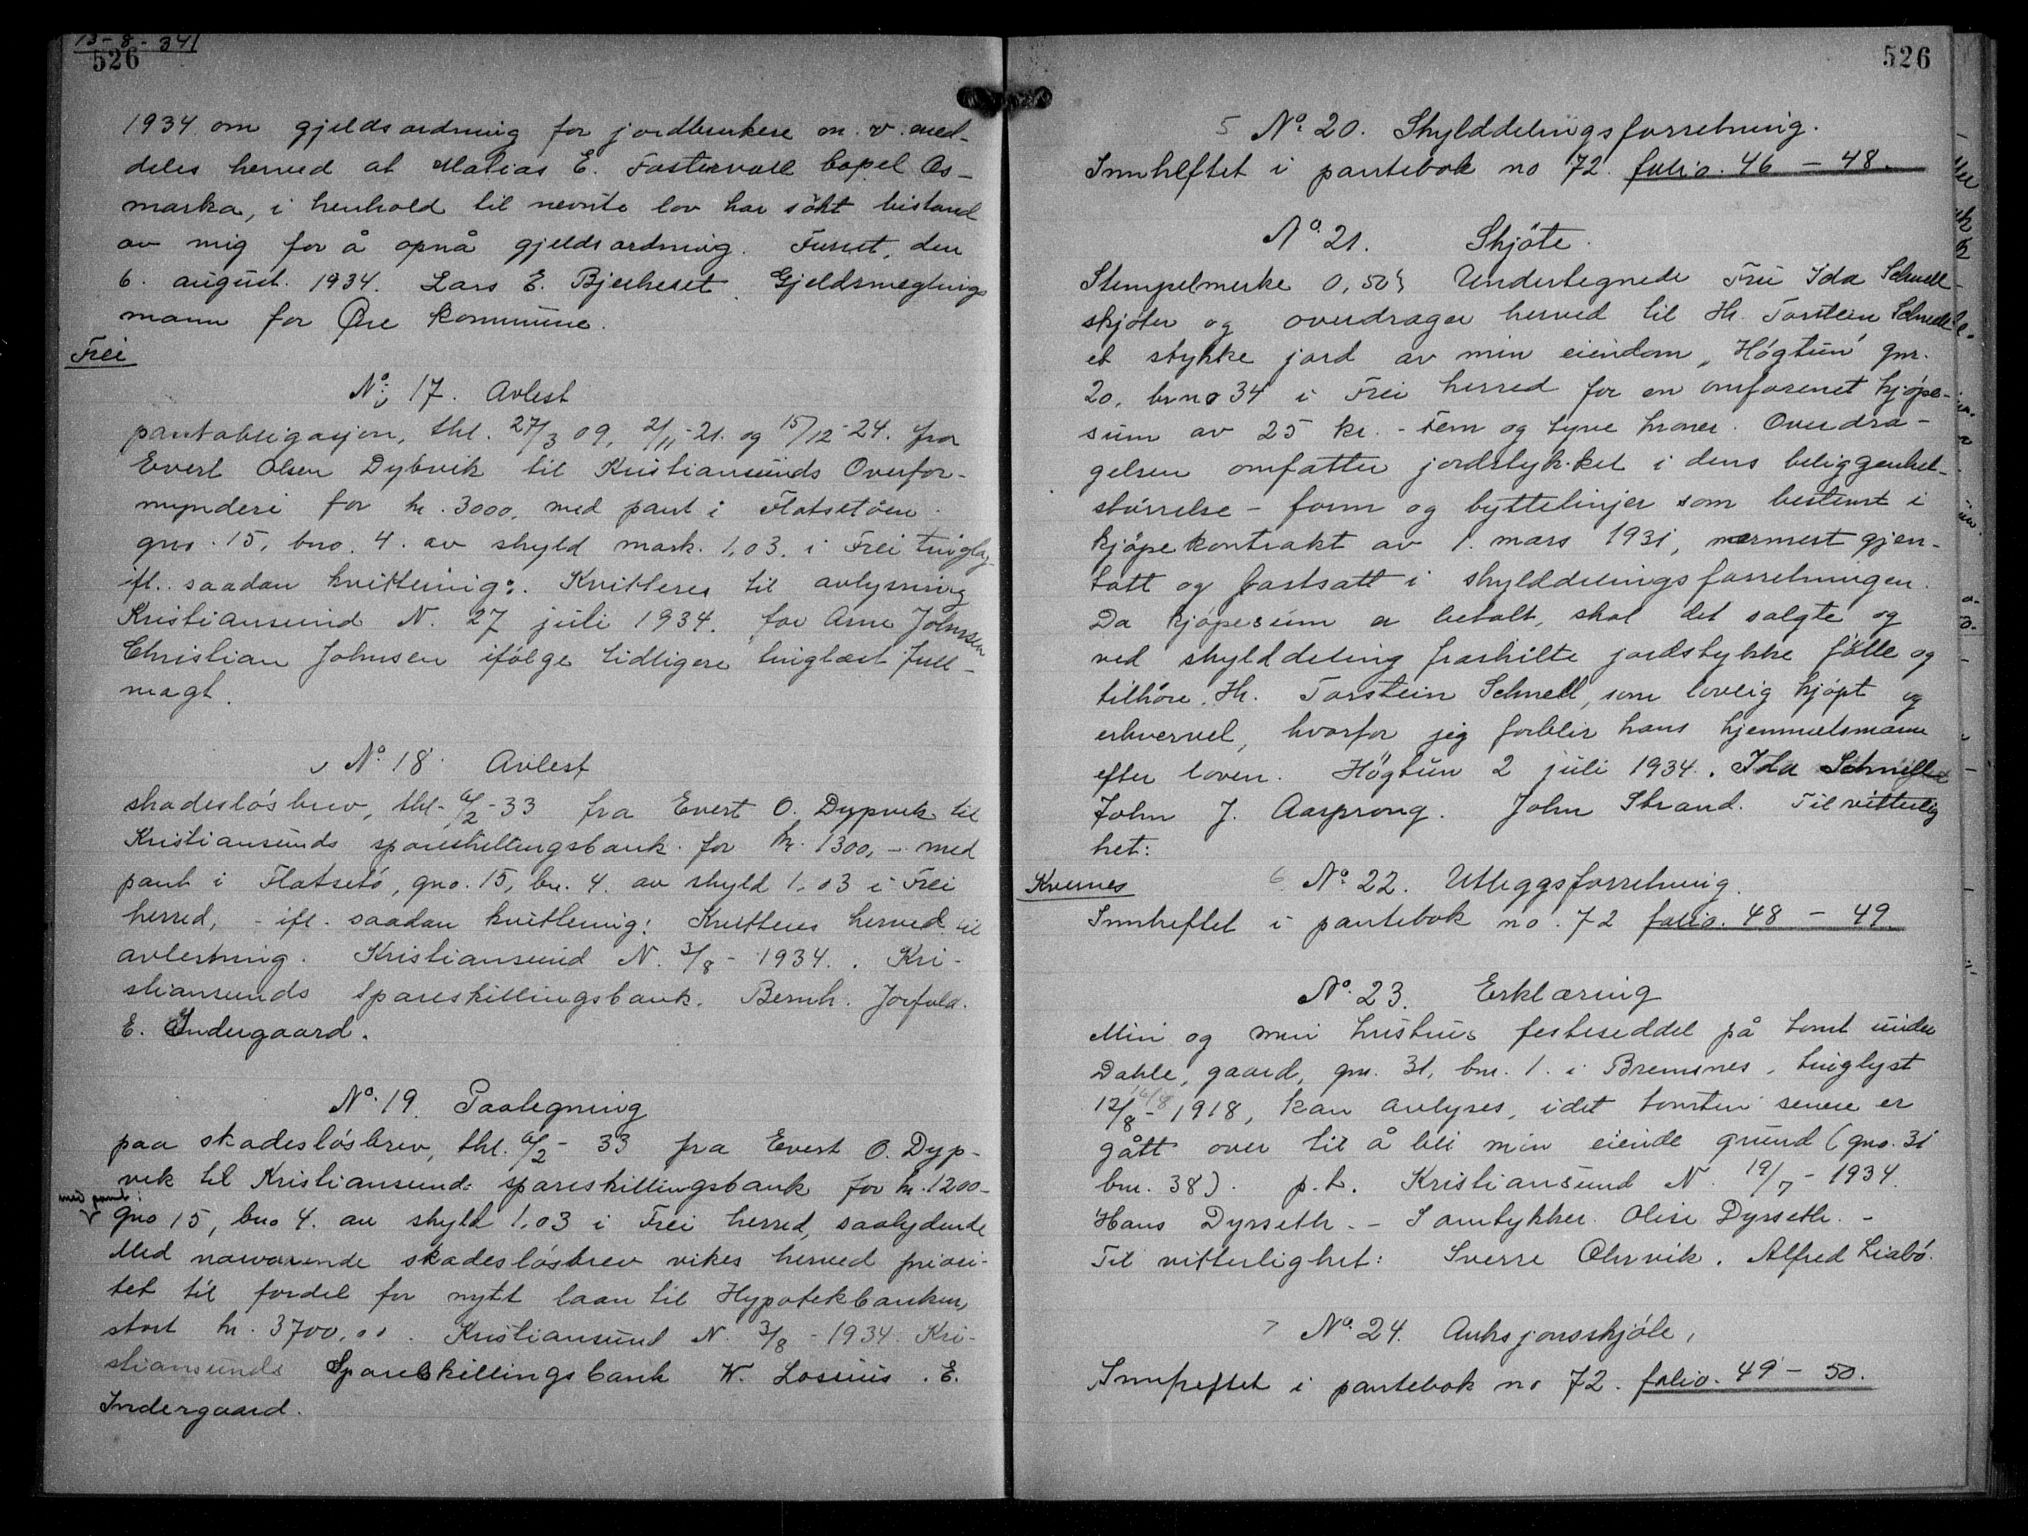 13-8-34
526
1934 om gjeldsordning for jordbrukere m. v. med-
deles herved at Matias E. Fostervoll Copel Os-
marka, i henhold til nevnte lov har søkt bistand
av mig for å opnå gjeldsordning. Furset, den
6. august 1934. Lars E. Bjerkeset. Gjeldsmeglings
mann for Øre kommune.
Frei
No. 17. Avlest
pantobligasjon, thl. 27/3 09, 2/11-21. og 15/12-24. fra
Evert Olsen Dybvik til Kristiansunds Overfor-
mynderi for kr. 3000, med pant i Flatsetøen
gno. 15, bno. 4. av skyld mark. 1,03. i Frei tinglag
ifl. saadan kvittering: Kvitteres til avlysning
Kristiansund N. 27 juli 1934. for Arne Johnsen
Christian Johnsen ifølge tidligere tinglæst full-
magt.
No. 18. Avlest
skadesløsbrev, thl. 6/2-33 fra Evert O. Dypvik til
Kristiansunds spareskillingsbank for kr. 1300,- med
pant i Flatsetø, gno. 15, bn. 4. av skyld 1,03 i Frei
herred, - ifl. saadan kvittering: Kvitteres herved til
avlesning. Kristiansund N. 3/8 - 1934. Kri-
stiansunds Spareskillingsbank. Bernh. Jorfald.
E. Indergaard.
No. 19. Paategning
paa skadesløsbrev, thl. 6/2 - 33 fra Evert O. Dyp-
vik til Kristiansunds spareskillingsbank for kr. 1200-
med pant i
gno 15, bno 4. av skyld 1,03 i Frei herred, saalydende
Med nærværende skadesløsbrev vikes herved priori-
tet til fordel for nytt laan til Hypotekbanken,
stort kr. 3700,00. Kristiansund N. 3/8 - 1934. Kri-
stiansunds Spareskillingsbank W. Lossius. E.
Indergaard.
526
5 No. 20. Skylddelingsforretning.
Innheftet i pantebok no 72. folio. 46 - 48.
No. 21. Skjøte.
Stempelmerke 0,50 Undertegnede Fru Ida Schnell
skjøter og overdrager herved til Hr. Torstein Schnell
et stykke jord av min eiendom "Høgtun" gnr.
20, brno 34 i Frei herred for en omforenet kjøpe-
sum av 25 kr. - Fem og tyve kroner. Overdra-
gelsen omfatter jordstykket i dens beliggenhet-
størrelse - form og byttelinjer som bestemt i
kjøpekontrakt av 1. mars 1931, nærmest gjen-
tatt og fastsatt i skylddelingsforretningen.
Da kjøpesum er betalt, skal det solgte og
ved skylddeling fraskilte jordstykke følge og
tilhøre Hr. Torstein Schnell, som lovlig kjøpt og
erhvervet, hvorfor jeg forblir hans hjemmelsmann
efter loven. Høgtun 2 juli 1934. Ida Schnell
John J. Aasprong. John Strand. Til vitterlig
het:
Kvernes
6. No. 22. Utleggsforretning.
Innheftet i pantebok no. 72 folio. 48 - 49.
No. 23. Erklæring
Min og min hustrus festeseddel på tomt under
Dahle, gaard, gnr. 31, bnr. 1. i Bremsnes, tinglyst
12/8 - 1918, kan avlyses, idet tomten senere er
gått over til å bli min eiende grund (gno. 31
bnr. 38). p.t. Kristiansund N. 19/7 - 1934.
Hans Dyrseth. - Samtykker. Olise Dyrseth. -
Til vitterlighet: Sverre Ohrvik. Alfred Liabø.
7 No. 24. Auksjonsskjøte,
Innheftet i pantebok no 72. folio. 49 - 50.